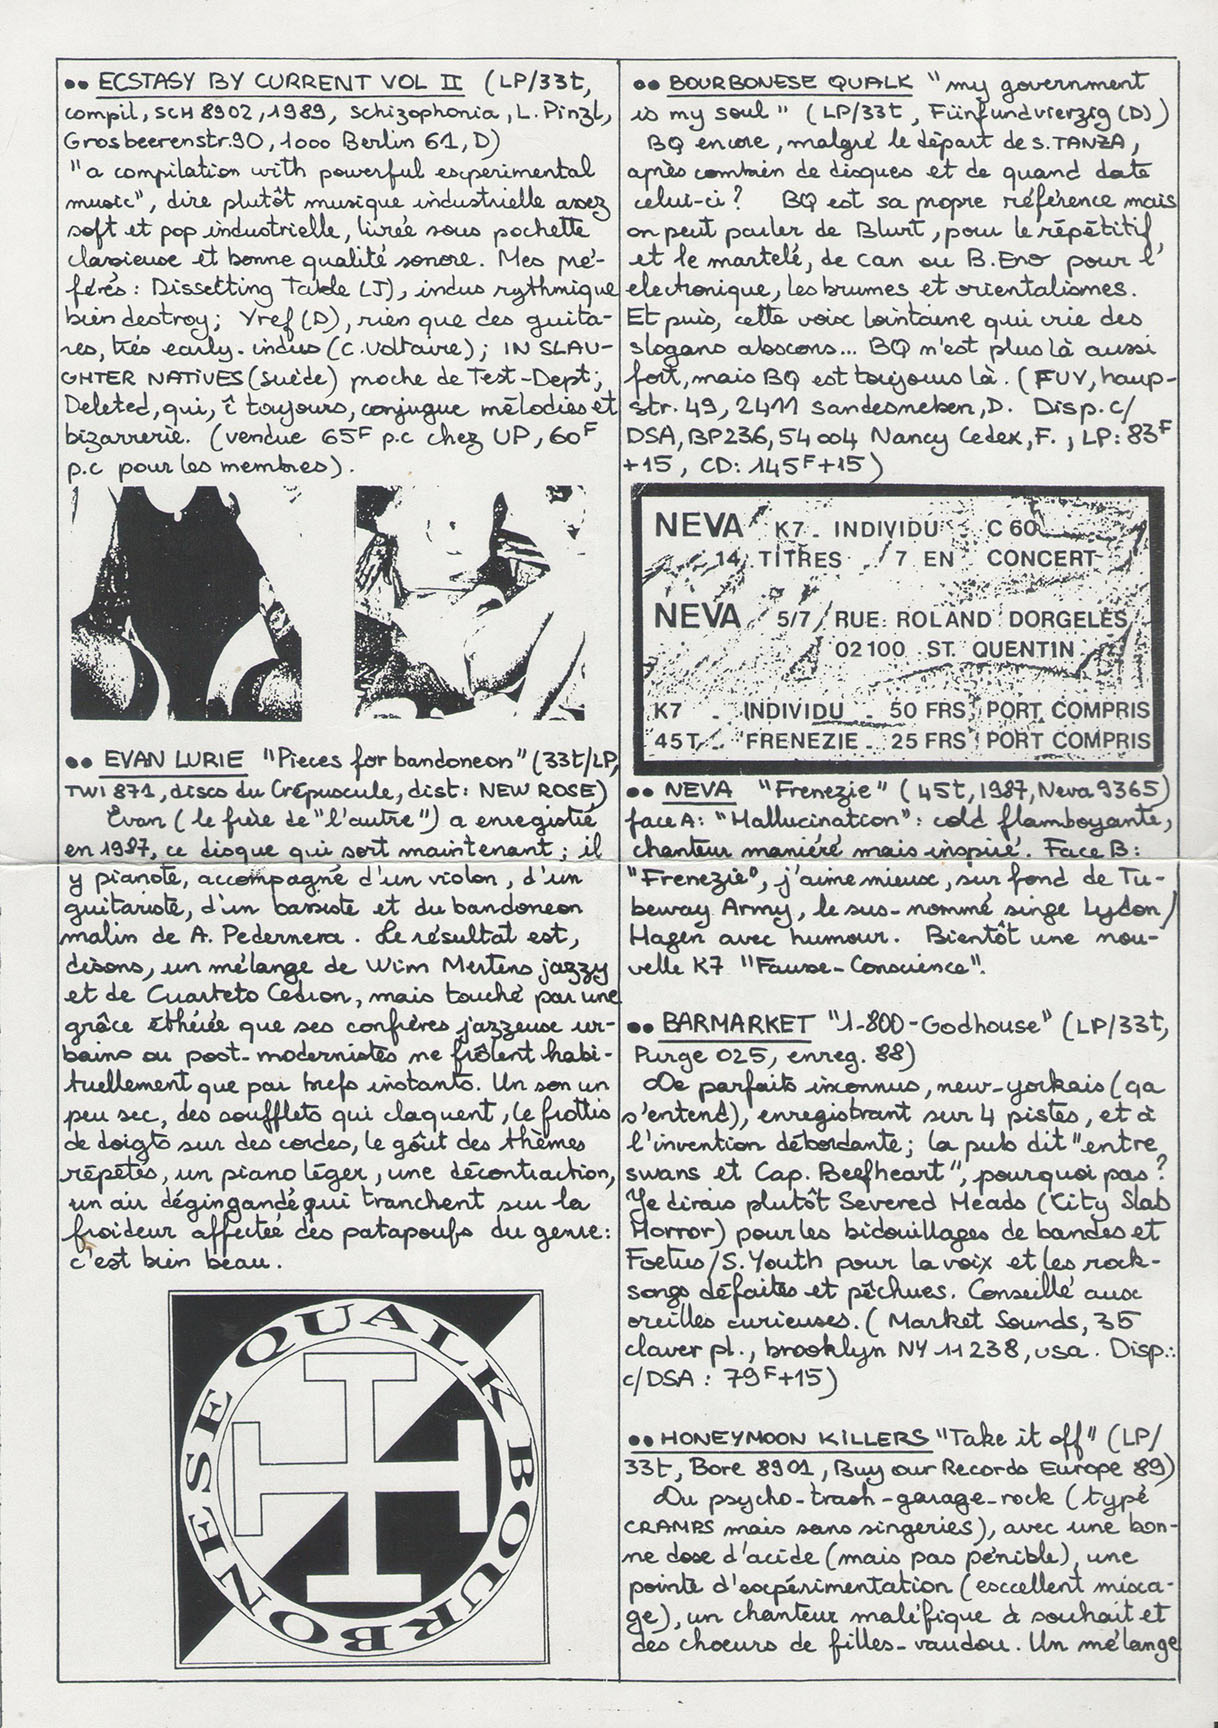 •• ECSTASY BY CURRENT VOL II (LP/33t,
compil, SCH 8902, 1989, Schizophonia, L. Pinzl,
Grosbeerenstr.90, 1000 Berlin 61, D)
"a compilation with powerful experimental
music", dire plutôt musique industrielle assez
soft et pop industrielle, livrée sous pochette
classieuse et bonne qualité sonore. Mes pré-
férés : Dissetting Table (J), indus rythmique
bien destroy; Yref (D), rien que des guita-
res, très early-indus (C. Voltaire); IN SLAU-
GHTER NATIVES (Suède) proche de Test-Dept;
Deleted, qui, ô toujours, conjugue mélodies et
bizarrerie. (vendue 65F p.c chez UP, 60F
p.c pour les membres).
•• EVAN LURIE "Pieces for bandoneon" (33t/LP,
TWI 871, disco du Crépuscule, dist: NEW ROSE)
Evan (le frère de "l'autre") a enregistré
en 1987, ce disque qui sort maintenant; il
y pianote, accompagné d'un violon, d'un
guitariste, d'un bassiste et du bandoneon
malin de A. Pedernera. Le résultat est,
disons, un mélange de Wim Mertens jazzy
et de Cuarteto Cedron, mais touché par une
grâce éthérée que ses confrères jazzeux ur-
bains ou post-modernistes ne frôlent habi-
tuellement que par brefs instants. Un son un
peu sec, des soufflets qui claquent, le frottis
de doigts sur des cordes, le goût des thèmes
répétés, un piano léger, une décontraction,
un air dégingandé qui tranchent sur la
froideur affectée des patapoufs du genre:
c'est bien beau.
BOURBONESE QUALK
•• BOURBONESE QUALK "my government
is my soul" (LP/33t, Fünfundvierzig (D))
BQ encore, malgré le départ de S. TANZA,
après combien de disques et de quand date
celui-ci? BQ est sa propre référence mais
on peut parler de Blurt, pour le répétitif,
et le martelé, de Can ou B. Eno pour l'
electronique, les brumes et orientalismes.
Et puis, cette voix lointaine qui crie des
slogans abscons... BQ n'est plus là aussi
fort, mais BQ est toujours là. (FUV, haup-
str. 49, 2411 Sandesneben, D. Disp. c/
DSA, BP236, 54004 Nancy Cedex, F., LP: 83F
+15, CD: 145F+15)
NEVA K7 - INDIVIDU - C 60
14 TITRES / 7 EN CONCERT
NEVA 5/7 RUE ROLAND DORGELES
02100 ST QUENTIN
K7 - INDIVIDU - 50 FRS PORT COMPRIS
45T - FRENEZIE - 25 FRS PORT COMPRIS
•• NEVA "Frenezie" (45t, 1987, Neva 9365)
face A: "Hallucination": cold flamboyante,
chanteur maniéré mais inspiré. Face B:
"Frenezie", j'aime mieux, sur fond de Tu-
beway Army, le sus-nommé singe Lydon/
Hagen avec humour. Bientôt une nou-
velle K7 "Fausse-Conscience".
•• BARMARKET "1-800-Godhouse" (LP/33t,
Purge 025, enreg. 88)
De parfaits inconnus, new-yorkais (ça
s'entend), enregistrant sur 4 pistes, et à
l'invention débordante; la pub dit "entre
swans et Cap. Beefheart", pourquoi pas?
Je dirais plutôt Severed Heads (City Slab
Horror) pour les bidouillages de bandes et
Foetus/S. Youth pour la voix et les rock-
songs défaites et pêchues. Conseillé aux
oreilles curieuses. (Market Sounds, 35
claver pl., brooklyn NY 11238, usa. Disp.:
c/DSA : 79F+15)
•• HONEYMOON KILLERS "Take it off" (LP/
33t, Bore 8901, Buy our Records Europe 89)
Du psycho-trash-garage-rock (type
CRAMPS mais sans singeries), avec une bon-
ne dose d'acide (mais pas pénible), une
pointe d'expérimentation (excellent mixa-
ge), un chanteur maléfique à souhait et
des choeurs de filles-vaudou. Un mélange